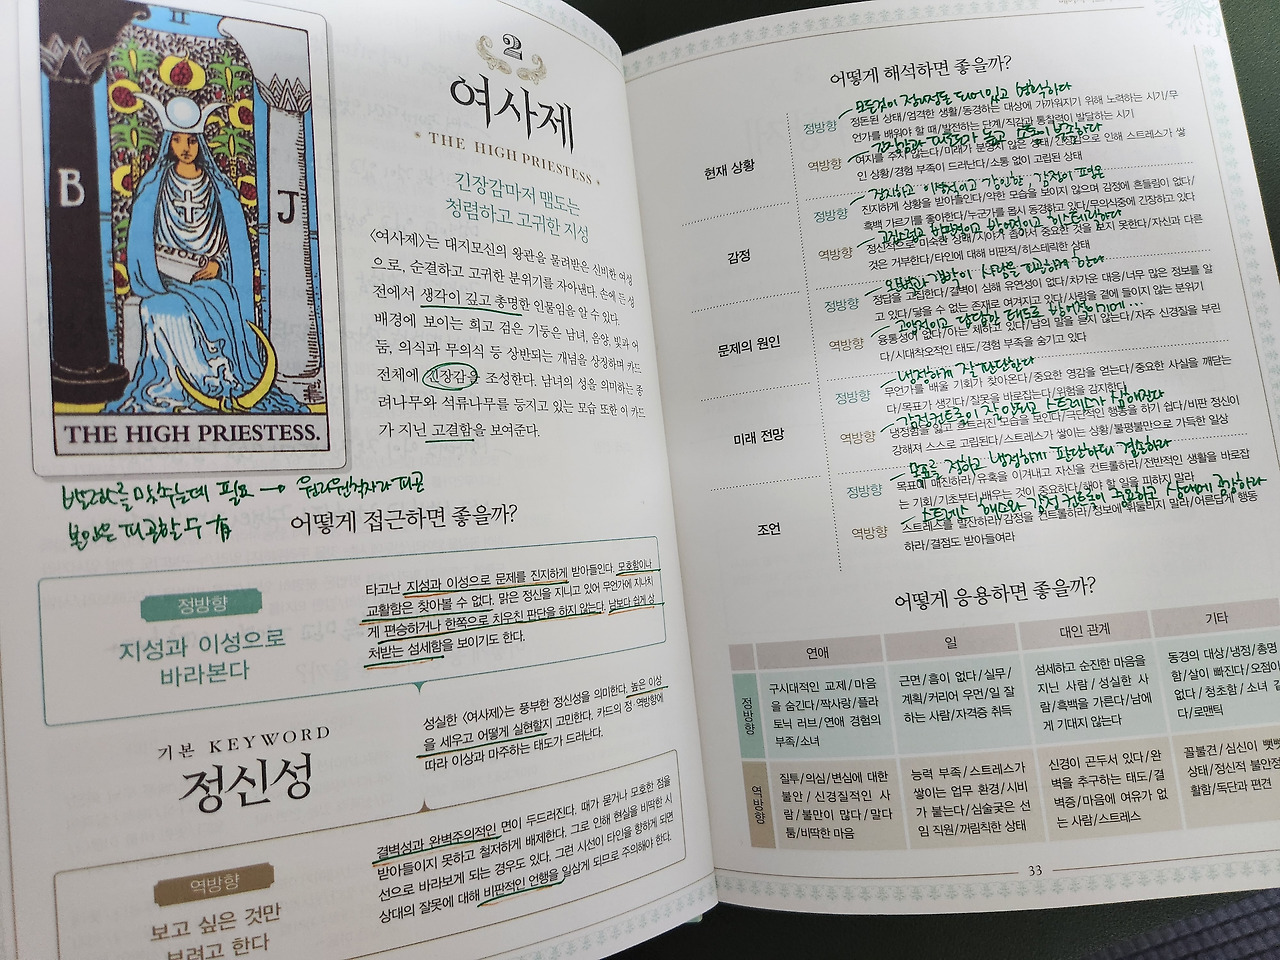 II
B
J
THE HIGH PRIESTESS.
2
여사제
THE HIGH PRIESTESS
긴장감마저 맴도는
청렴하고 고귀한 지성
〈여사제〉는 대지모신의 왕관을 물려받은 신비한 여성
으로, 순결하고 고귀한 분위기를 자아낸다. 손에 든 성
전에서 생각이 깊고 총명한 인물임을 알 수 있다.
배경에 보이는 희고 검은 기둥은 남녀, 음양, 빛과 어
둠, 의식과 무의식 등 상반되는 개념을 상징하며 카드
전체에 긴장감을 조성한다. 남녀의 성을 의미하는 종
려나무와 석류나무를 등지고 있는 모습 또한 이 카드
가 지닌 고결함을 보여준다.
어떻게 접근하면 좋을까?
정방향
지성과 이성으로
바라본다
타고난 지성과 이성으로 문제를 진지하게 받아들인다. 모호함이나
교활함은 찾아볼 수 없다. 맑은 정신을 지니고 있어 무언가에 지나치
게 편승하거나 한쪽으로 치우친 판단을 하지 않는다. 남보다 쉽게 상
처받는 섬세함을 보이기도 한다.
기본 KEYWORD
정신성
성실한 〈여사제〉는 풍부한 정신성을 의미한다. 높은 이상
을 세우고 어떻게 실현할지 고민한다. 카드의 정·역방향에
따라 이상과 마주하는 태도가 드러난다.
역방향
보고 싶은 것만
보려고 한다
결벽성과 완벽주의적인 면이 두드러진다. 때가 묻거나 모호한 점을
받아들이지 못하고 철저하게 배제한다. 그로 인해 현실을 비딱한 시
선으로 바라보게 되는 경우도 있다. 그런 시선이 타인을 향하게 되면
상대의 잘못에 대해 비판적인 언행을 일삼게 되므로 주의해야 한다.
어떻게 해석하면 좋을까?
현재 상황
정방향
정돈된 상태/엄격한 생활/동경하는 대상에 가까워지기 위해 노력하는 시기/무
언가를 배워야 할 때/발전하는 단계/직감과 통찰력이 발달하는 시기
역방향
여지를 주지 않는다/미래가 분명치 않은 상태/긴장감으로 인해 스트레스가 쌓
인 상황/경험 부족이 드러난다/소통 없이 고립된 상태
감정
정방향
진지하게 상황을 받아들인다/약한 모습을 보이지 않으며 감정에 흔들림이 없다/
흑백 가르기를 좋아한다/누군가를 몹시 동경하고 있다/무의식중에 긴장하고 있다
역방향
정신적으로 미숙한 상태/시야가 좁아서 중요한 것을 보지 못한다/자신과 다른
것은 거부한다/타인에 대해 비판적/히스테릭한 상태
문제의 원인
정방향
정답을 고집한다/결벽이 심해 유연성이 없다/차가운 대응/너무 많은 정보를 알
고 있다/닿을 수 없는 존재로 여겨지고 있다/사람을 곁에 들이지 않는 분위기
역방향
융통성이 없다/아는 체하고 있다/남의 말을 듣지 않는다/자주 신경질을 부린
다/시대착오적인 태도/경험 부족을 숨기고 있다
미래 전망
냉정하게 잘 판단한다
정방향
무언가를 배울 기회가 찾아온다/중요한 영감을 얻는다/중요한 사실을 깨닫는
다/목표가 생긴다/잘못을 바로잡는다/위험을 감지한다
역방향
냉정함을 잃고 흐트러진 모습을 보인다/극단적인 행동을 하기 쉽다/비판 정신이
강해져 스스로 고립된다/스트레스가 쌓이는 상황/불평불만으로 가득한 일상
조언
정방향
목표에 매진하라/유혹을 이겨내고 자신을 컨트롤하라/전반적인 생활을 바로잡
는 기회/기초부터 배우는 것이 중요하다/해야 할 일을 피하지 말라
역방향
스트레스를 발산하라/감정을 컨트롤하라/정보에 휘둘리지 말라/어른답게 행동
하라/결점도 받아들여라
어떻게 응용하면 좋을까?
연애
일
대인 관계
기타
정방향
구시대적인 교제/마음
을 숨긴다/짝사랑/플라
토닉 러브/연애 경험의
부족/소녀
근면/흠이 없다/실무/
계획/커리어 우먼/일 잘
하는 사람/자격증 취득
섬세하고 순진한 마음을
지닌 사람/성실한 사
람/흑백을 가른다/남에
게 기대지 않는다
동경의 대상/냉정/총명
함/살이 빠진다/오점이
없다/청초함/소녀 감
다/로맨틱
역방향
질투/의심/변심에 대한
불안/신경질적인 사
람/불만이 많다/말다
툼/비딱한 마음
능력 부족/스트레스가
쌓이는 업무 환경/시비
가 붙는다/심술궂은 선
임 직원/꺼림칙한 상태
신경이 곤두서 있다/완
벽을 추구하는 태도/결
벽증/마음에 여유가 없
는 사람/스트레스
꼴불견/심신이 뻣뻣
상태/정신적 불안정
활함/독단과 편견
33